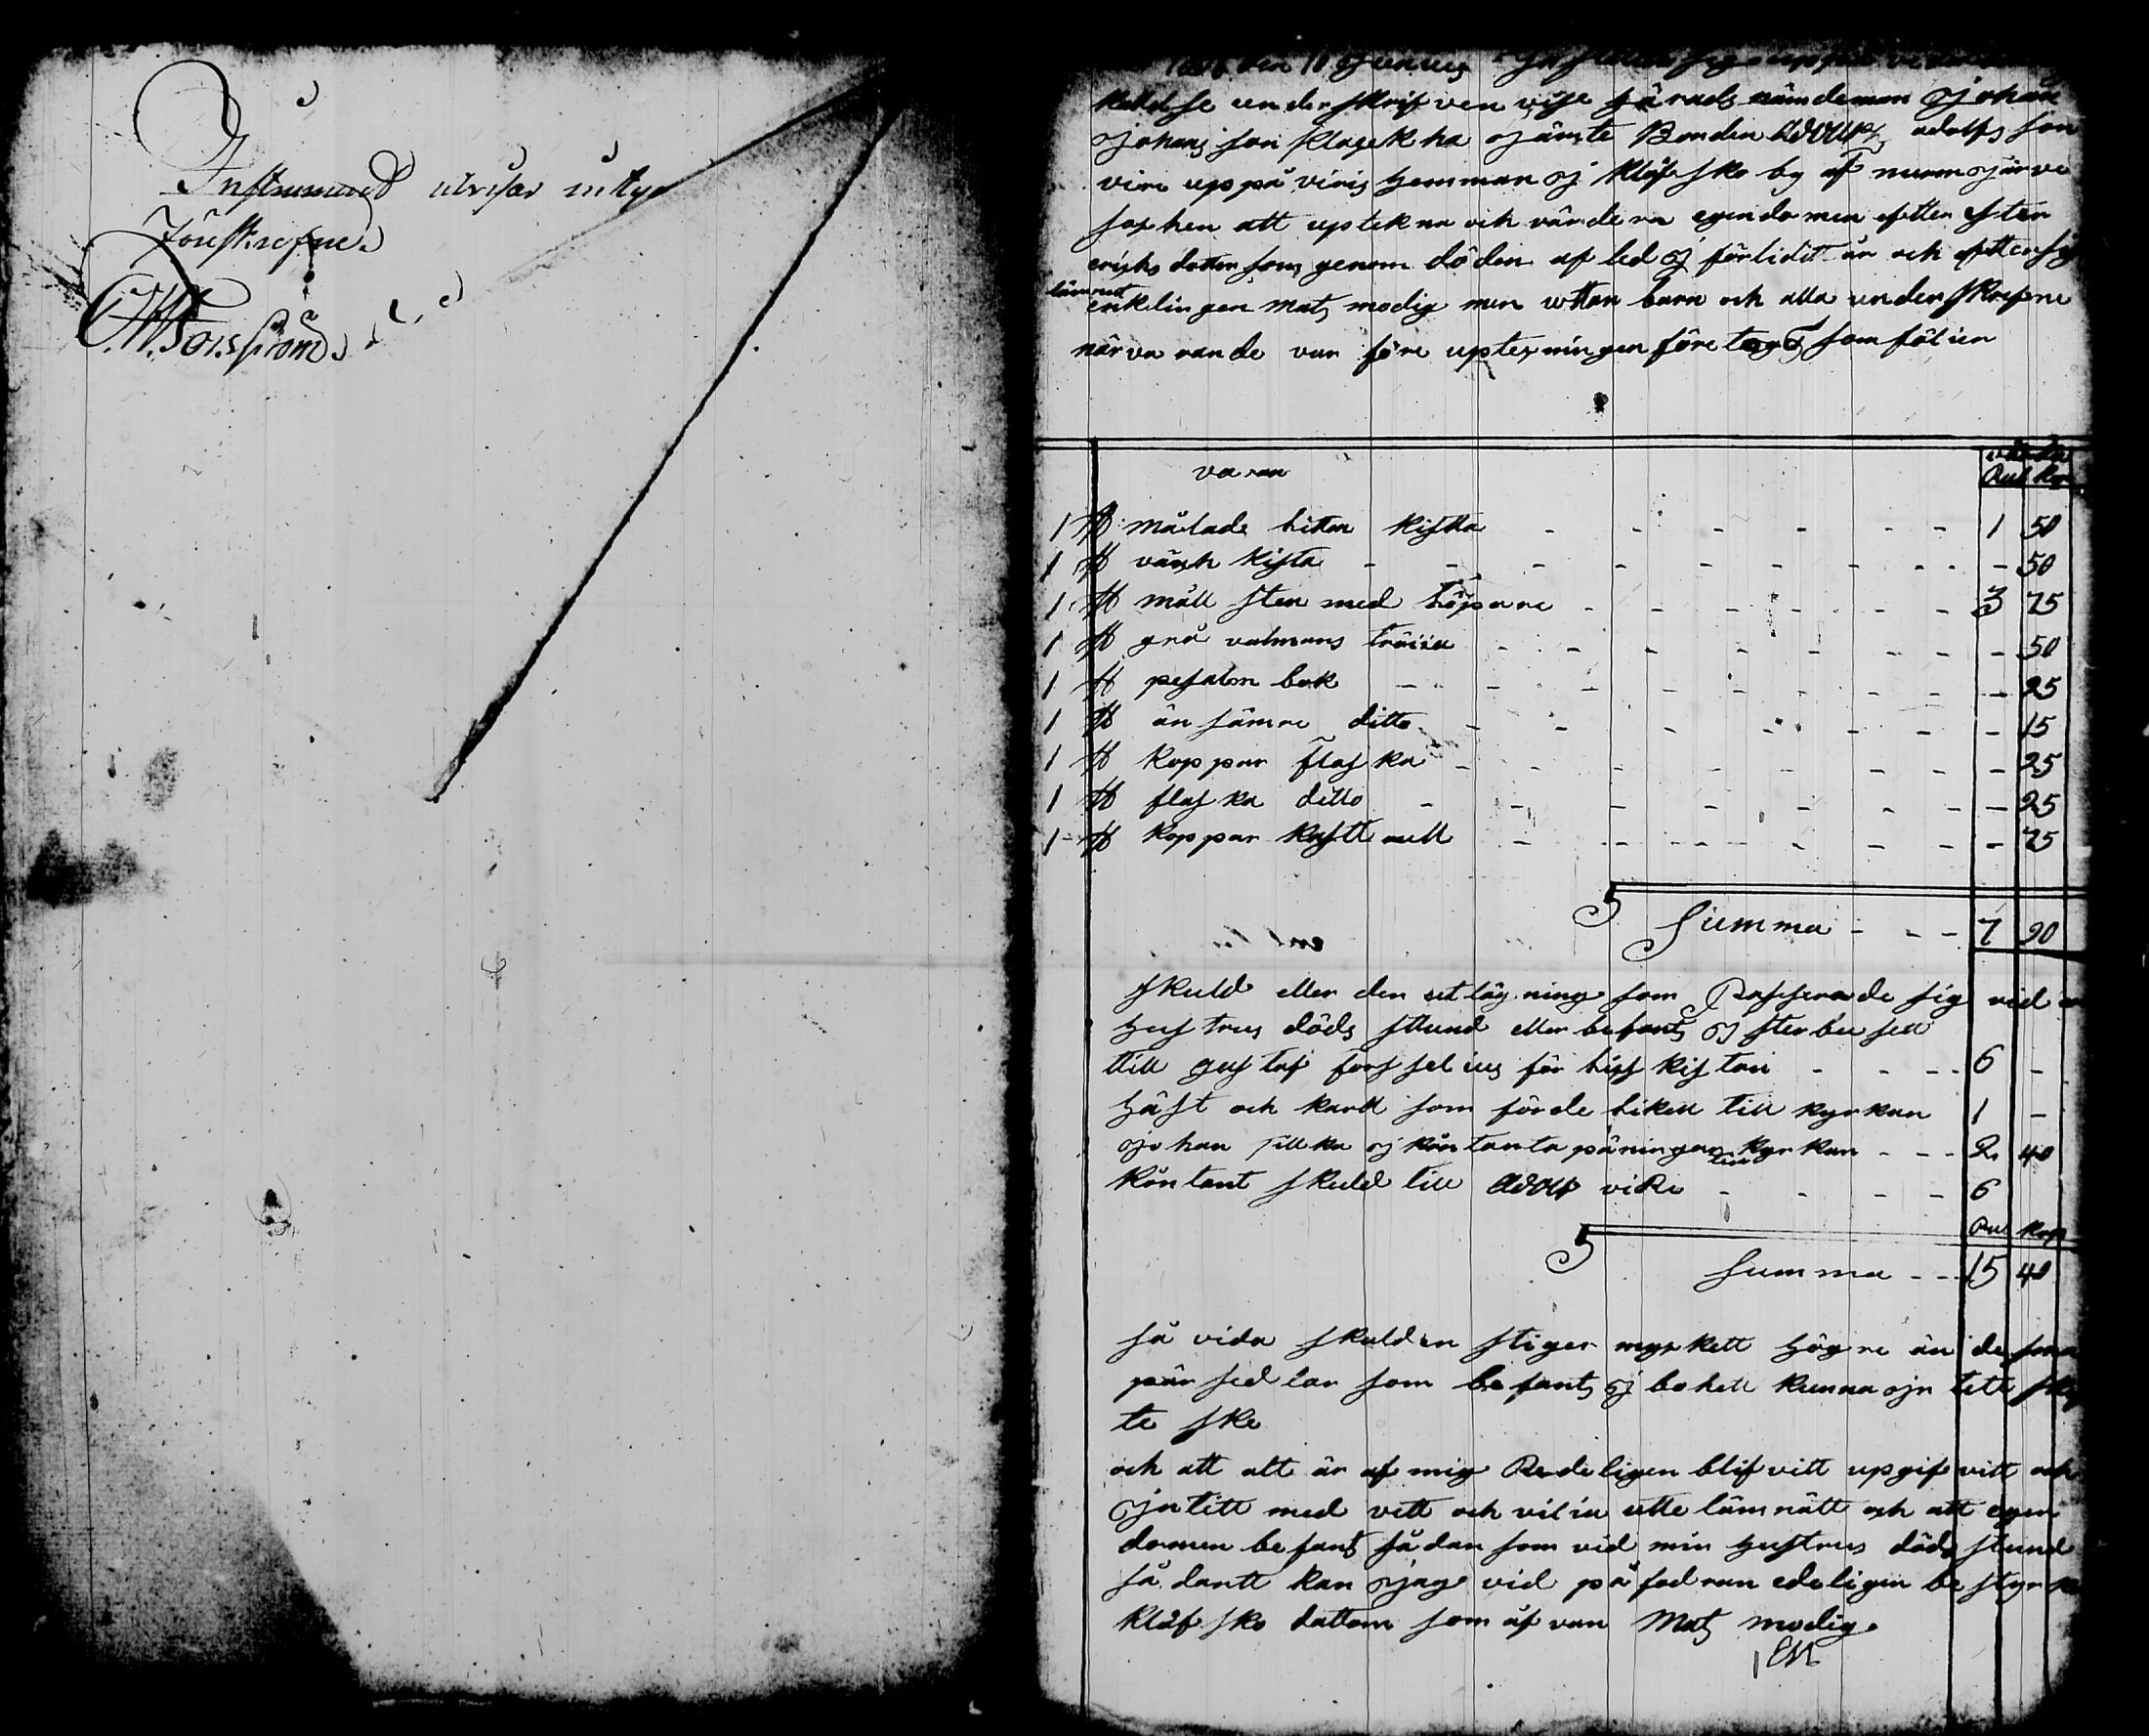 Instrumentet utvisar intyga
W. Forsström
den 10 Junius
kallelse underskrifven vise härads nämdeman Johan
Johansson klasek ha jämte Bonden Adolf adolfs son
vire uppå viris hemman j kläfsko by af
sochen att uptekna och värdera egendomen efter ester
erichs dotter som genom döden afled j förlidit år och efter sig
lämnat
enklingen Mats modig men uttan barn och alla underskrefne
närvarande var före uptexningen företagd som föl ier
varan
Rub Kop
1 st målade liten kistta - - - 1 50
1 st värh kista - - - 50
1 st mäll sten med löpare - - - 3 75
1 st grå valmans tröiia - - - 50
1 st pesalm bok - - - 25
1 st än sämre ditto - - - 15
1 st koppar flaska - - - 25
1 st flaska ditto - - - 25
1 st koppar kastt rull - - - 75
Summa - - - 7 90
skuld eller den utlägning som Passerade sig vid
hustrus döds stund eller befants j sterbusett
till gustaf forsselius för lijkkistan - - - 6 -
häst och karll som förde liket till kyrkan 1 -
johan silka j kontanta päningar till kyrkan - - - 2 40
kontant skuld till Adolf vire - - - 6
Rub Kop
Summa - - 15 40
så vida skulden stiger myckett högre än de små
pärsedlar som befants j bohett kunna jn tett sky
te ske
och att alt är af mig Redeligen blifvitt upgifvitt och
jntett med vett och vilia utte lämnätt och att egen
domen befants sådan som vid min hustrus döds stund
så dantt kan jag vid påfodran edeligen bestyrka
kläfsko dattom som åf van Mats modig
EM